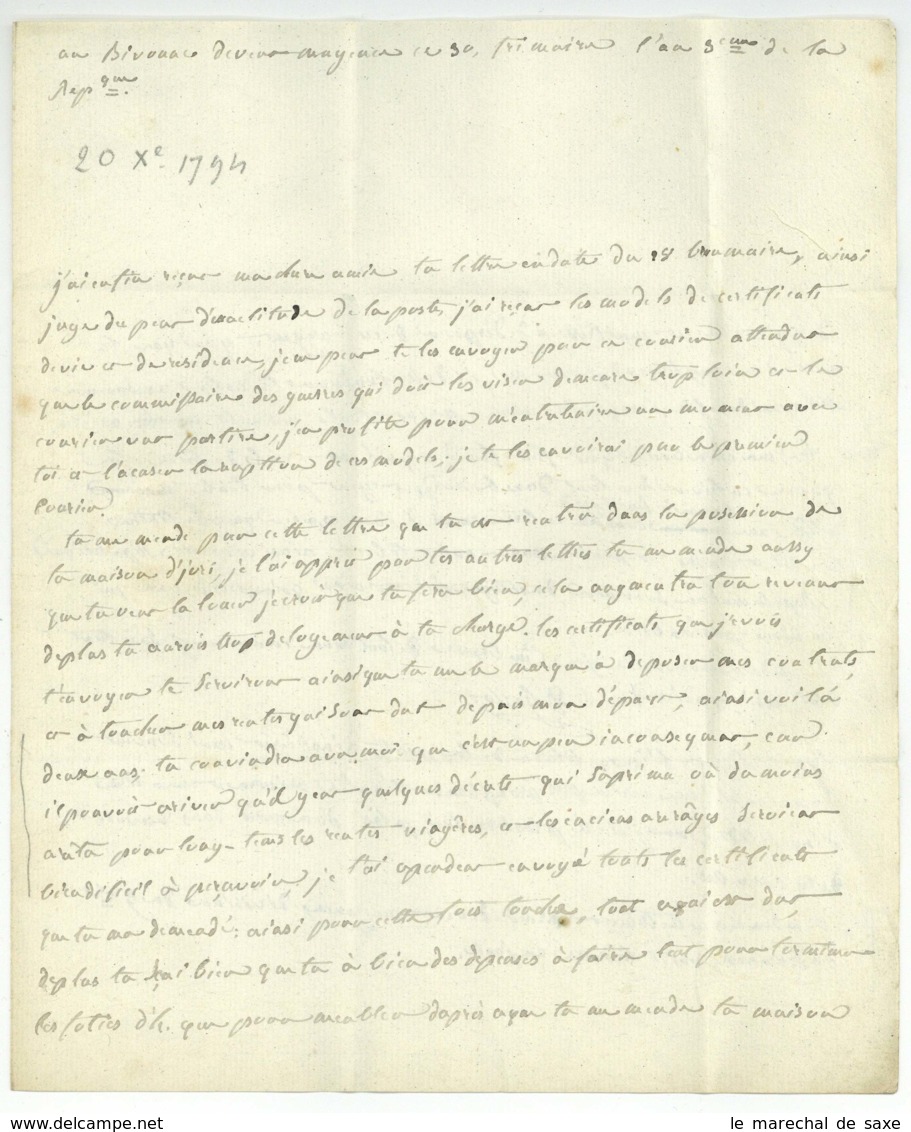 au Bivouac devent mayence ce 30, frimaire l'an 3eme de la
Rep que.
20 Xe. 1794
j'ai enfin reçue ma chere amie ta lettre en datte du 28 brumaire, ainsi
juge du peux d'exactitude de la poste, j'ai reçue les models de certificats
de vie et de residence, je ne peux te les envoyer par ce courier attendue
que le commissaire des guerres qui doit les viser demeure trop loin et le
courier vat partire, j'en profite pour m'entretenire un moment avec
toi et t'acuser la reception de ces models, je te les enverai par le premier
Courier.
tu me mende par cette lettre que tu est rentré dans la possession de
ta maison d'juri, je l'ai appris par tes autres lettres tu me mende aussy
que tu veux la louer je crois que tu fera bien, cela augmentra ton revenue
deplus tu aurois trop de logement à ta charge. les certificats que je vais
t'envoyer te serviront ainsi que tu me le marque à deposer mes contrats,
et à toucher mes rentes qui sont dut depuis mon départ, ainsi voilà
deux ans, tu conviendra avec moi que c'est un peu inconsequent, car
il pouvoit ariver qu'il y eut quelques décrets qui suprima où du moins
arêta pour long-tems les rentes viagêres, et les enciens arrâges seroient
bien dificil à percevoir, je t'ai cependent envoyé touts les certificats
que tu ma demendé: ainsi pour cette fois touche, tout ce qui est dut,
deplus tu sçai bien que tu à bien des depenses à faire tent pour terminer
les folies d'h. que pour meubler daprès ce que tu me mende ta maison
le marechal de saxe